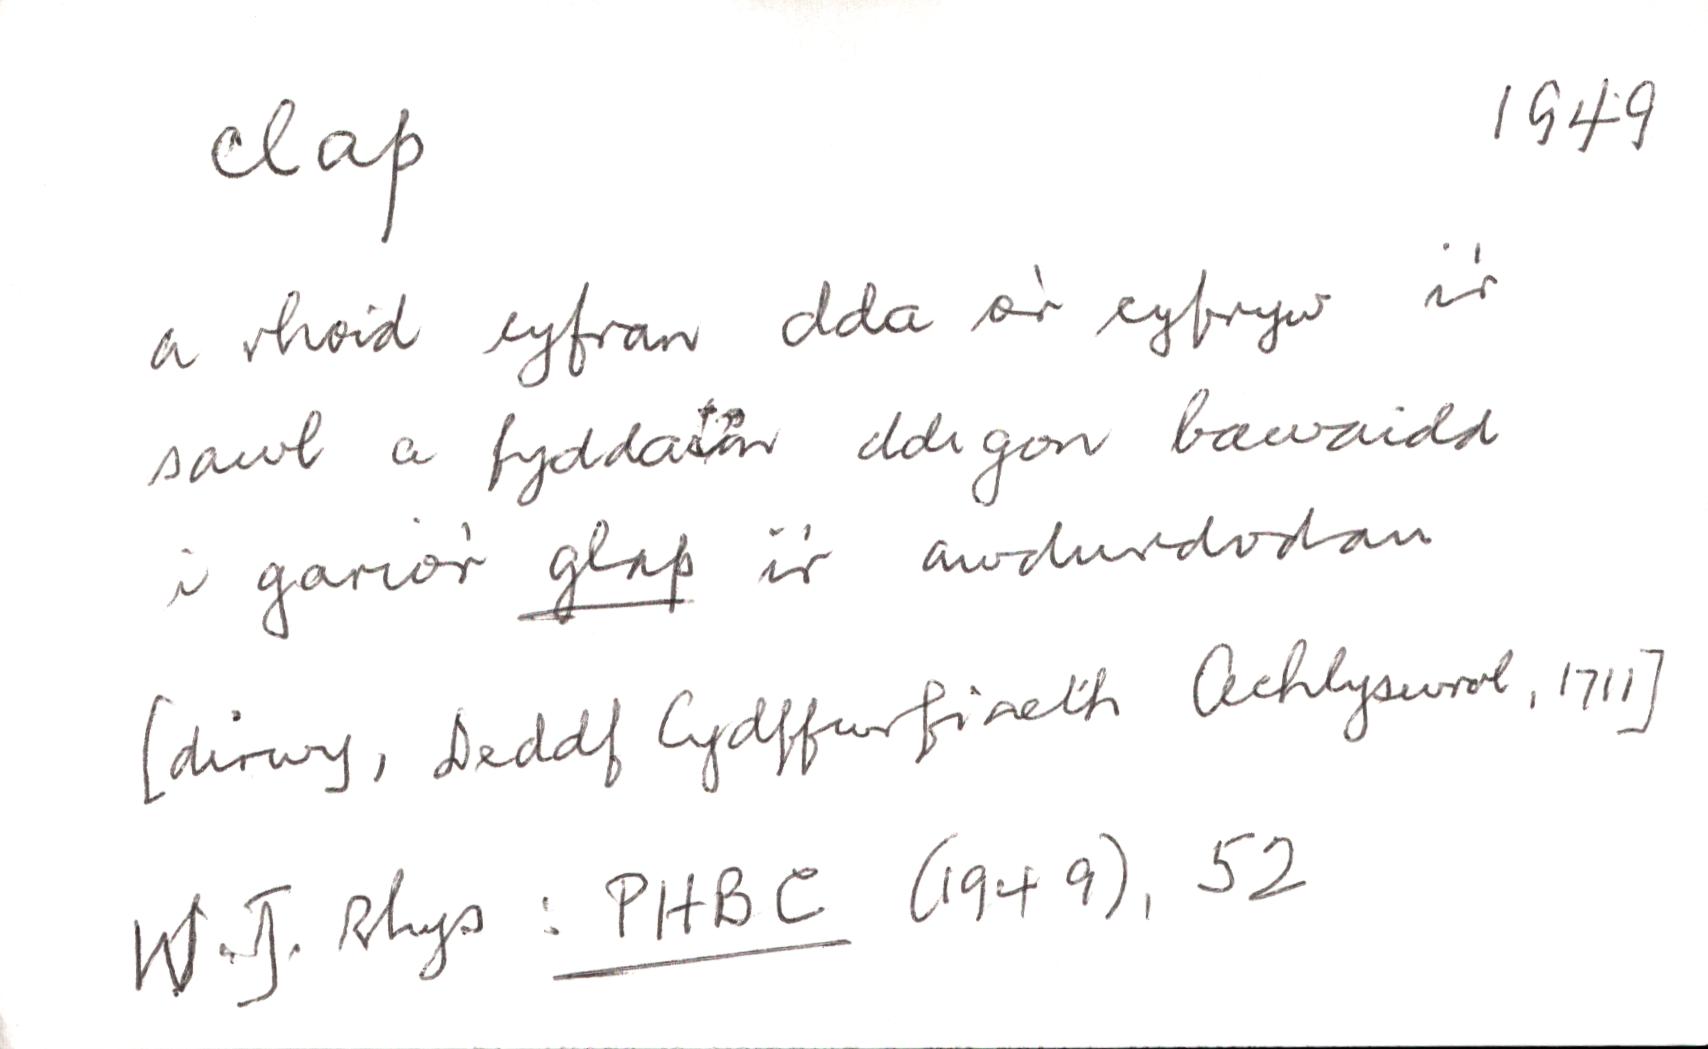 clap 1949
a rhoid cyfran dda o'r cyfryw i'r
sawl a fyddai'n ddigon bawaidd
i gario'r glap i'r awdurdodau
[dirwy, Deddf Cydffurfiaeth Achlysurol, 1711]
W. J. Rhys : PHBC (1949), 52